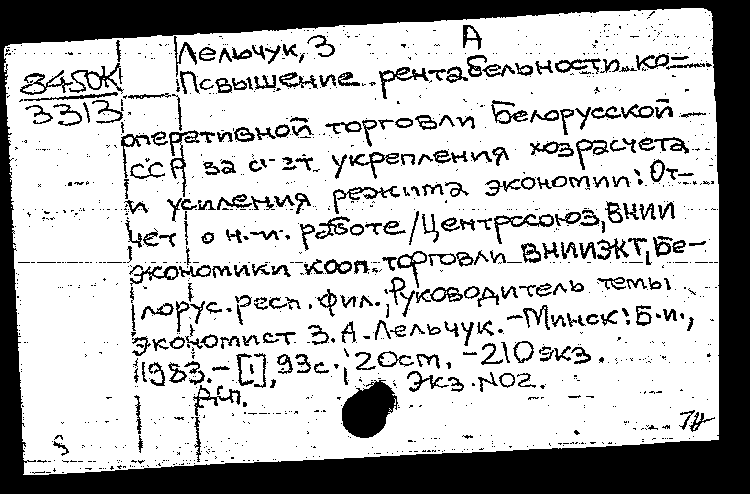 Лельчук, З А
8450К Повышение рентабельности ко-
3313
оперативной торговли Белорусской
ССР за счет укрепления хозрасчета
и усиления режима экономии: От-
чет о н.-и. работе/Центросоюз, ВНИИ
экономики кооп. торговли ВНИИЭКТ, Бе-
лорус. респ. фил.; Руководитель темы
экономист З.А. Лельчук. - Минск: Б.и.,
1983. - [1], 93с.; 20см. - 210экз.
Экз. №02.